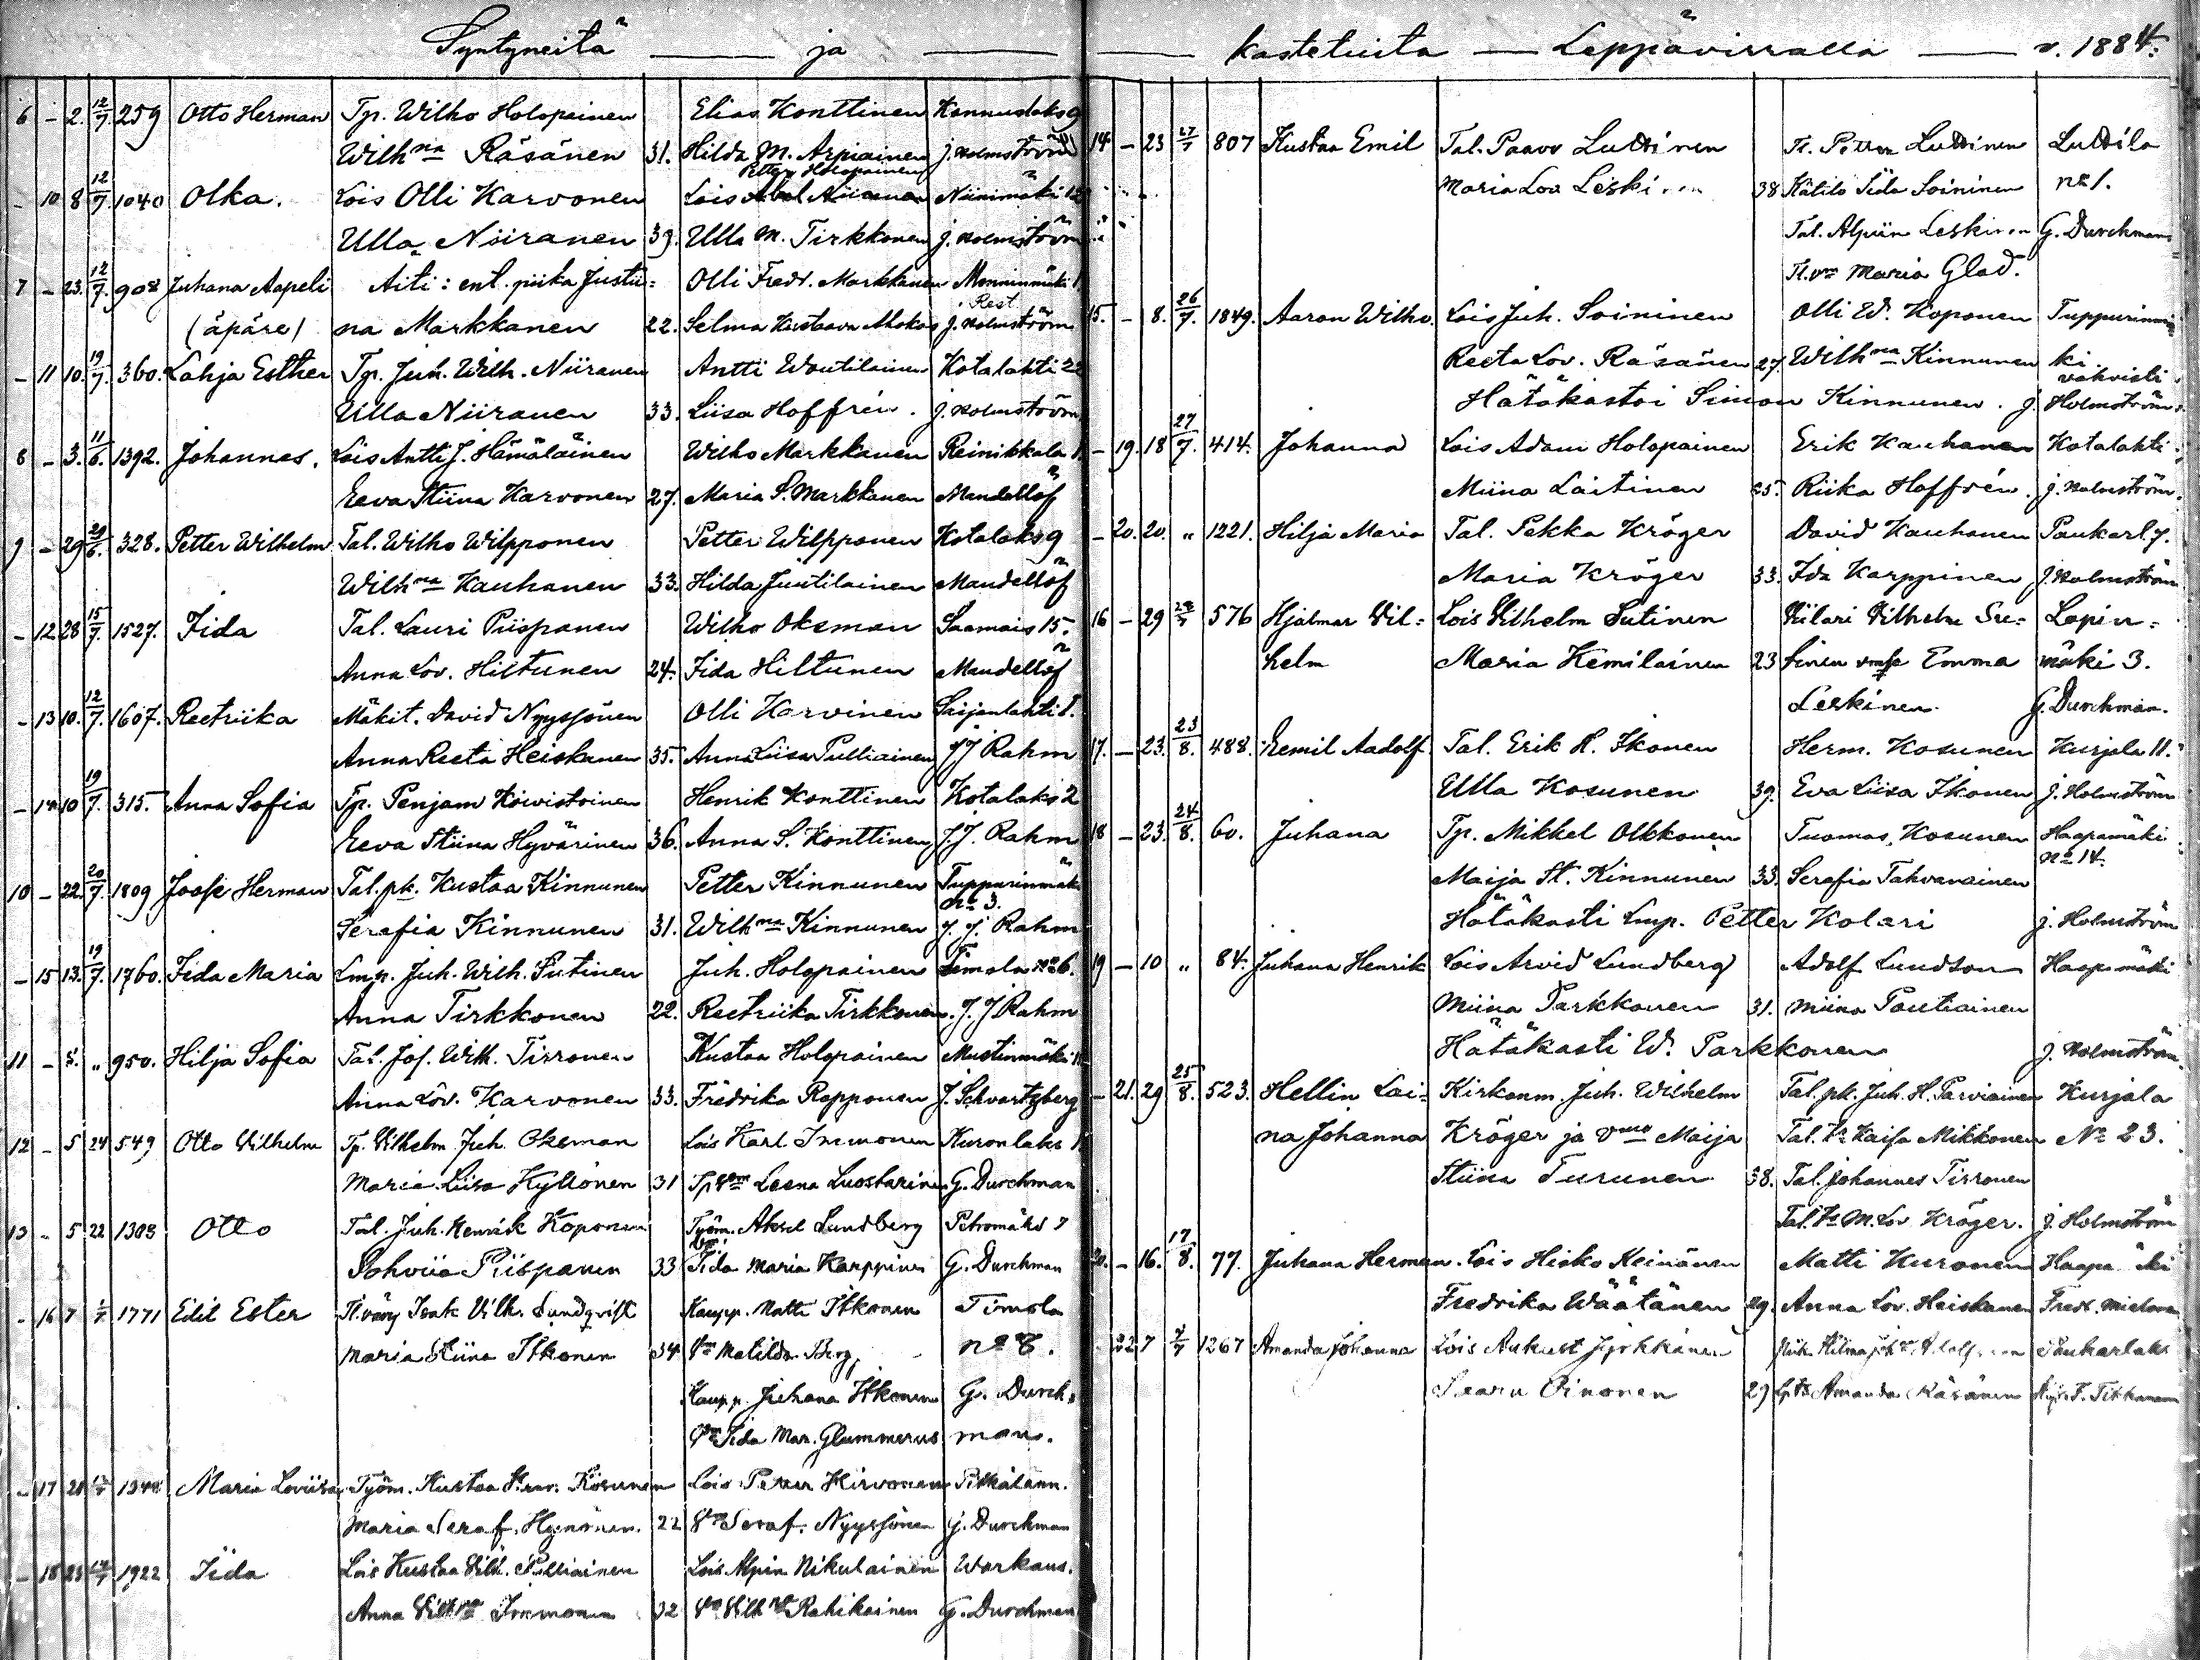 Syntyneitä ja kastetuita Leppävirralla v. 1884.
6 - 2. 12/7. 259 Otto Herman Tp. Wilho Holopainen Elias Konttinen Konnuslaks 9
Wilhna Räsänen 31. Hilda M. Arpiainen J. Holmström
Petter Holopainen
- 10 8 12/7. 1040 Olka. Lois Olli Karvonen Lois Abel Niiranen Niinimäki 12
Ulla Niiranen 39. Ulla M. Tirkkonen J. Holmström
7 - 23. 12/7. 908 Juhana Aapeli Äiti: ent. piika Justii= Olli Fredr. Markkanen Monninmäki 1
(äpäre) na Markkanen 22. Selma Kustaava Ahokas J. Holmström
- 11 10. 19/7. 360. Lahja Esther Tp. Juh. Wilh. Niiranen Antti Woutilainen Kotalahti 22
Ulla Niiranen 33. Liisa Hoffrén. J. Holmström
8 - 3. 11/6. 1392. Johannes. Lois Antti J. Hämäläinen Wilho Markkanen Reinikkala 1.
Eeva Stiina Karvonen 27. Maria S. Markkanen Mandellöf
9 - 29 20/6. 328. Petter Wilhelm Tal. Wilho Wilpponen Petter Wilpponen Kotalaks 9
Wilhna Kauhanen 33. Hilda Juutilainen Mandellöf
- 12 28 15/7. 1527. Iida Tal. Lauri Piispanen Wilho Oksman Saamais 15.
Anna Lov. Hiltunen 24. Iida Hiltunen Mandellöf
- 13 10. 12/7. 1607. Reetriika Mäkit. David Nyyssönen Olli Karvinen Saijanlahti 1.
Anna Reeta Heiskanen 35. Anna Liisa Pulliainen J J Rahm
- 14 10 19/7. 315. Anna Sofia Tp. Penjam Koivistoinen Henrik Konttinen Kotalaks 2
Eeva Stiina Hyvärinen 36. Anna S. Konttinen J. J. Rahm
10 - 22. 20/7. 1809 Joose Herman Tal. pk. Kustaa Kinnunen Petter Kinnunen Tuppurinmäki No 3.
Serafia Kinnunen 31. Wilhna Kinnunen J. J. Rahm
- 15 13. 19/7. 1760. Iida Maria Lmp. Juh. Wilh. Sutinen Juh. Holopainen Timola No 6.
Anna Tirkkonen 22. Reetriika Tirkkonen. J. J Rahm
11 - 5. " 950. Hilja Sofia Tal. Jos. Wilh. Tirronen Kustaa Holopainen Mustinmäki 11
Anna Lov. Karvonen 33. Fredrika Ropponen J. Schvartzberg
12 - 5 24 549 Otto Vilhelm Tp. Vilhelm Juh. Oksman Lois Karl Immonen Kuronlaks 1
Maria Liisa Kyllönen 31 Leena Luostarinen G. Durchman
13 - 5 22 1303 Otto Tal. Juh. Henrik Koponen Työm. Aksel Lundberg Petromäki 7
Sohviia Piispanen 33 Iida Maria Karppinen G. Durchman
- 16 7 1771 Edit Ester Isak Vilh. Sundqvist Kaupp. Matti Itkonen Timola
Maria Stiina Itkonen 34 Matilda Berg No 8.
Kaupp. Juhana Itkonen G. Durch=
Iida Mar. Glummerus man.
- 17 Maria Loviisa Työm. Kustaa Kosunen Lois Petter Hirvonen Pitkälann.
Maria Seraf. Hynönen. 22 Seraf. Nyyssönen G. Durchman
- 18 23 1922 Iida Lois Kustaa Vilh. Pulliainen Lois Alpin Nikulainen Warkaus.
Anna Immonen 32 Rahikainen G. Durchman
14 - 23 27/7 807 Kustaa Emil Tal. Paavo Luttinen Petter Luttinen Luttila
Maria Lov Leskinen 38 Kätilö Iida Soininen No 1.
Tal. Alpiin Leskinen G. Durchman
Maria Glad.
15. - 8. 26/7. 1849. Aaron Wilho. Lois Juh. Soininen Olli W. Koponen Tuppurinmä=
Reeta Lov. Räsänen 27. Wilhna Kinnunen ki.
Hätäkastoi Simon Kinnunen. vahvisti J. Holmström.
- 19. 18 27/7. 414. Johanna Lois Adam Holopainen Erik Kauhanen Kotalahti
Miina Laitinen 25. Riika Hoffrén. J. Holmström.
- 20. 20. " 1221. Hilja Maria Tal. Pekka Kröger David Kauhanen Paukarl. 7.
Maria Kröger 33. Ida Karppinen J. Holmström
16 - 29 576 Hjalmar Vil= Lois Vilhelm Sutinen Viilari Vilhelm Su= Lopin=
helm Maria Kemiläinen 23 tinen Emma mäki 3.
Leskinen. G. Durchman.
17. - 23. 23/8. 488. Eemil Aadolf Tal. Erik H. Ikonen Herm. Kosunen Kurjala 11.
Ulla Kosunen 39. Eva Liisa Ikonen J. Holmström
18 - 23. 24/8. 60. Juhana Tp. Mikkel Olkkonen Tuomas Kosunen Haapamäki No 14.
Maija St. Kinnunen 33. Serafia Tahvanainen
Hätäkasti Lmp. Petter Kolari J. Holmström
19 - 10 " 84. Juhana Henrik Lois Arvid Lundberg Adolf Lundson Haapamäki
Miina Parkkonen 31. Miina Poutiainen
Hätäkasti W. Parkkonen J. Holmström.
- 21. 29 25/8. 523. Hellin Lai= Kirkonm. Juh. Wilhelm Tal. pk. Juh. H. Parviainen Kurjala
na Johanna Kröger ja vmo Maija Kaisa Mikkonen No 23.
Stiina Turunen 38. Tal. Johannes Tirronen
M. Lov Kröger. J. Holmström
20. - 16. 17/8. 77. Juhana Herman. Lois Heikki Keinänen Matti Kuronen
Fredrika Wäätänen 29. Anna Lov. Heiskanen
- 22 7 1267 Amanda Johanna Lois Aukust Jyrkkänen Paukarlaks
29 Amanda Räsänen